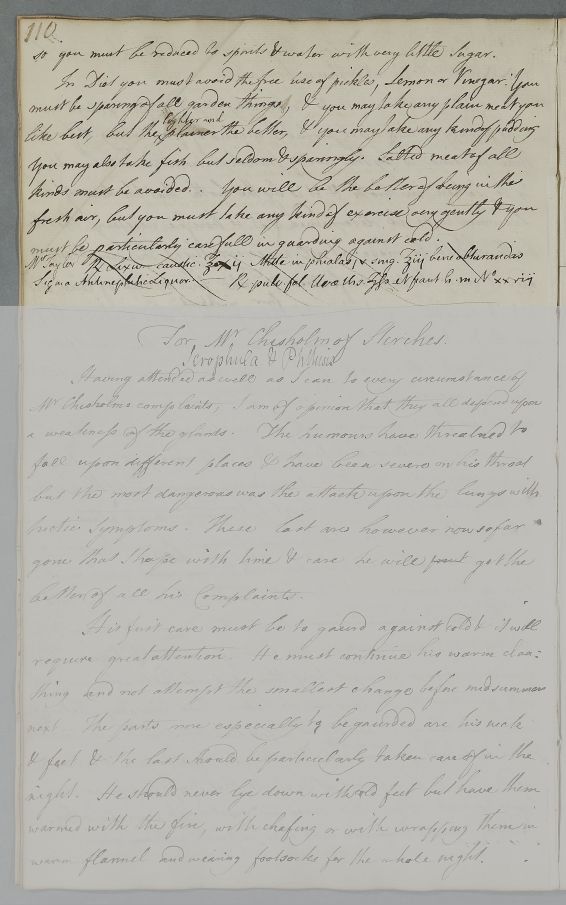 110
so you must be reduced to spirits & water with very little Sugar.
In Diet you must avoid the free use of pickles, Lemon or Vinegar. You
must be sparing of all garden things, & you may take any plain meat you
lighter and
like best, but the plainer the better, & you may take any kind of pudding
You may also take fish but seldom & sparingly. Salted meat of all
kinds must be avoided. You will be the better of being in the
fresh air, but you must take any kind of exercise very gently & you
must be particularly carefull in guarding against cold.
Mrs Taylor
Liquor
For, Mr Chisholm of Sterches.
Scrophula & Phthisis
Having attended as well as I can to every circumstance of
Mr Chisholms complaints, I am of opinion that they all depend upon
a weakness of the glands. The humours have threatned to
fall upon different places & have been severe on his throat
but the most dangerous was the attack upon the lungs with
hectic Symptoms. These last are however now so far
gone that I hope with time & care he will get the
better of all his Complaints.
His first care must be to gaurd against cold & it will
require great attention. He must continue his warm cloa=
thing and not attempt the smallest change before midsummer
next. The parts more especially to be gaurded are his neck
& feet & the last should be particularly taken care of in the
night. He should never lye down with cold feet but have them
warmed with the fire, with chafing or with wrapping them in
warm flannel and wearing footsocks for the whole night.